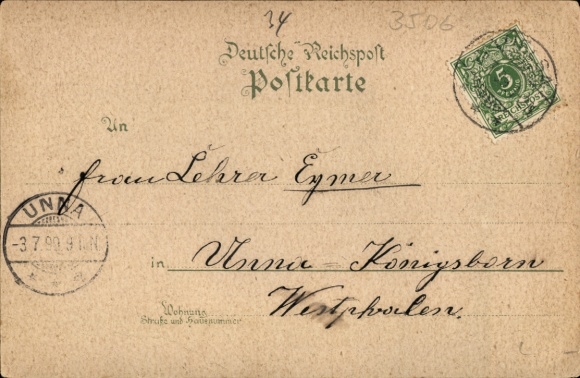 34
3506
Deutsche Reichspost
Postkarte
5
An
Frau Lehrer Eymer
UNNA
-3.7.99.9-1.N
in Unna-Königsborn
Westphalen.
Wohnung
Straße und Hausnummer